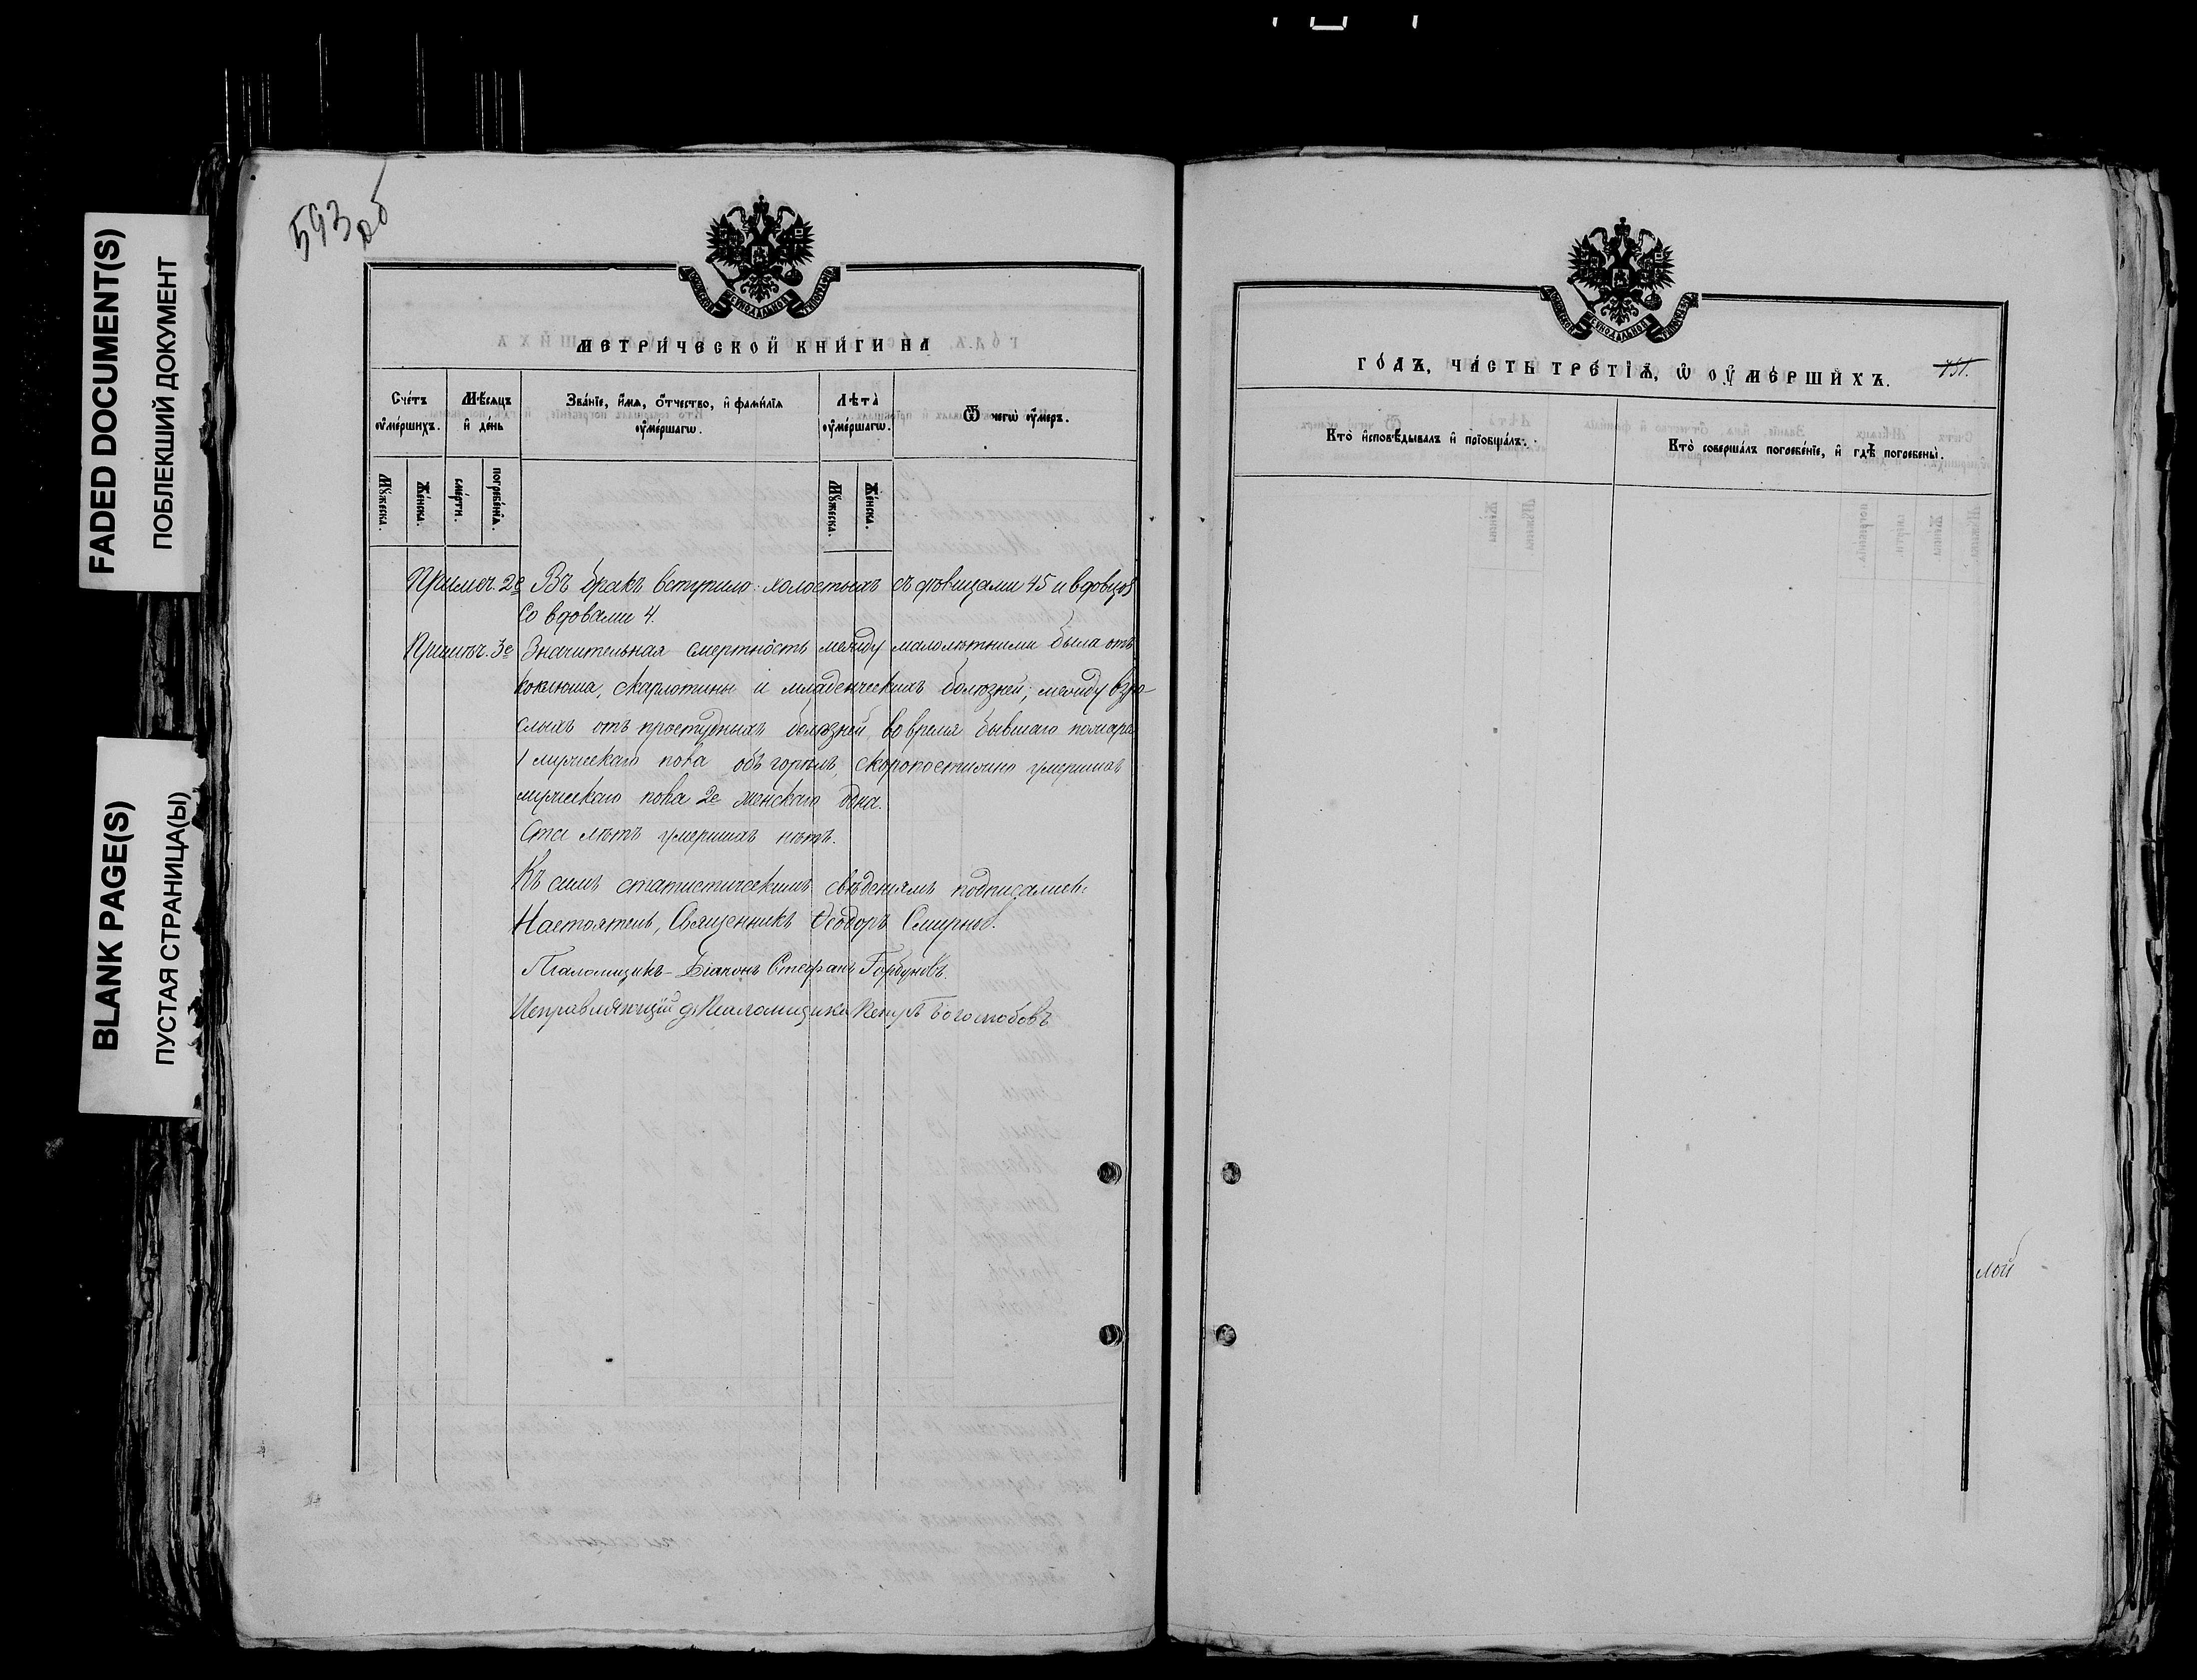 FADED DOCUMENT(S)
ПОБЛЕКШИЙ ДОКУМЕНТ
BLANK PAGE(S)
ПУСТАЯ СТРАНИЦА(Ы)
593 об
МЕТРИ́ЧЕСКОЙ КНИ́ГИ НА
Сче́тъ ᲂу҆ме́ршихъ.
Мѣ́сяцъ и҆ де́нь
Зва́нїе, и҆́мя, ѻ҆́тчество, и҆ фами́лїя ᲂу҆ме́ршагѡ.
Лѣ́та ᲂу҆ме́ршагѡ.
Ѿ чегѡ̀ ᲂу҆́меръ.
Мꙋ́жеска.
Же́нска.
сме́рти.
погребе́нїѧ.
Мꙋ́жеска.
Же́нска.
Примеч. 2е Въ бракъ вступило: холостыхъ съ дѣвицами 45 и вдовцов
со вдовами 4.
Примѣч. 3е Значительная смертность между малолѣтними была отъ
коклюша, скарлотины и младенческихъ болѣзней; между взро-
слыхъ отъ простудныхъ болѣзней во время бывшаго пожара
1 мужескаго пола обгорѣлъ, скоропостижно умершихъ
мужескаго пола 2е женскаго одна.
Ста лѣтъ умершихъ нѣтъ.
Къ симъ статистическимъ свѣденіямъ подписались:
Настоятель, Священникъ Ѳеодоръ Смирнов.
Псаломщикъ-Діаконъ Стефанъ Горбуновъ.
Исправляющій д. Псаломщика Петръ Боголюбовъ
ГО́ДЪ, ЧА́СТЬ ТРЕ́ТЇѦ, Ѡ҆ ОУ҆МЕ́РШИХЪ.
751.
Кто̀ и҆сповѣ́дывалъ и҆ прїобща́лъ.
Кто̀ соверша́лъ погребе́нїе, и҆ гдѣ̀ погребены̀.
лой